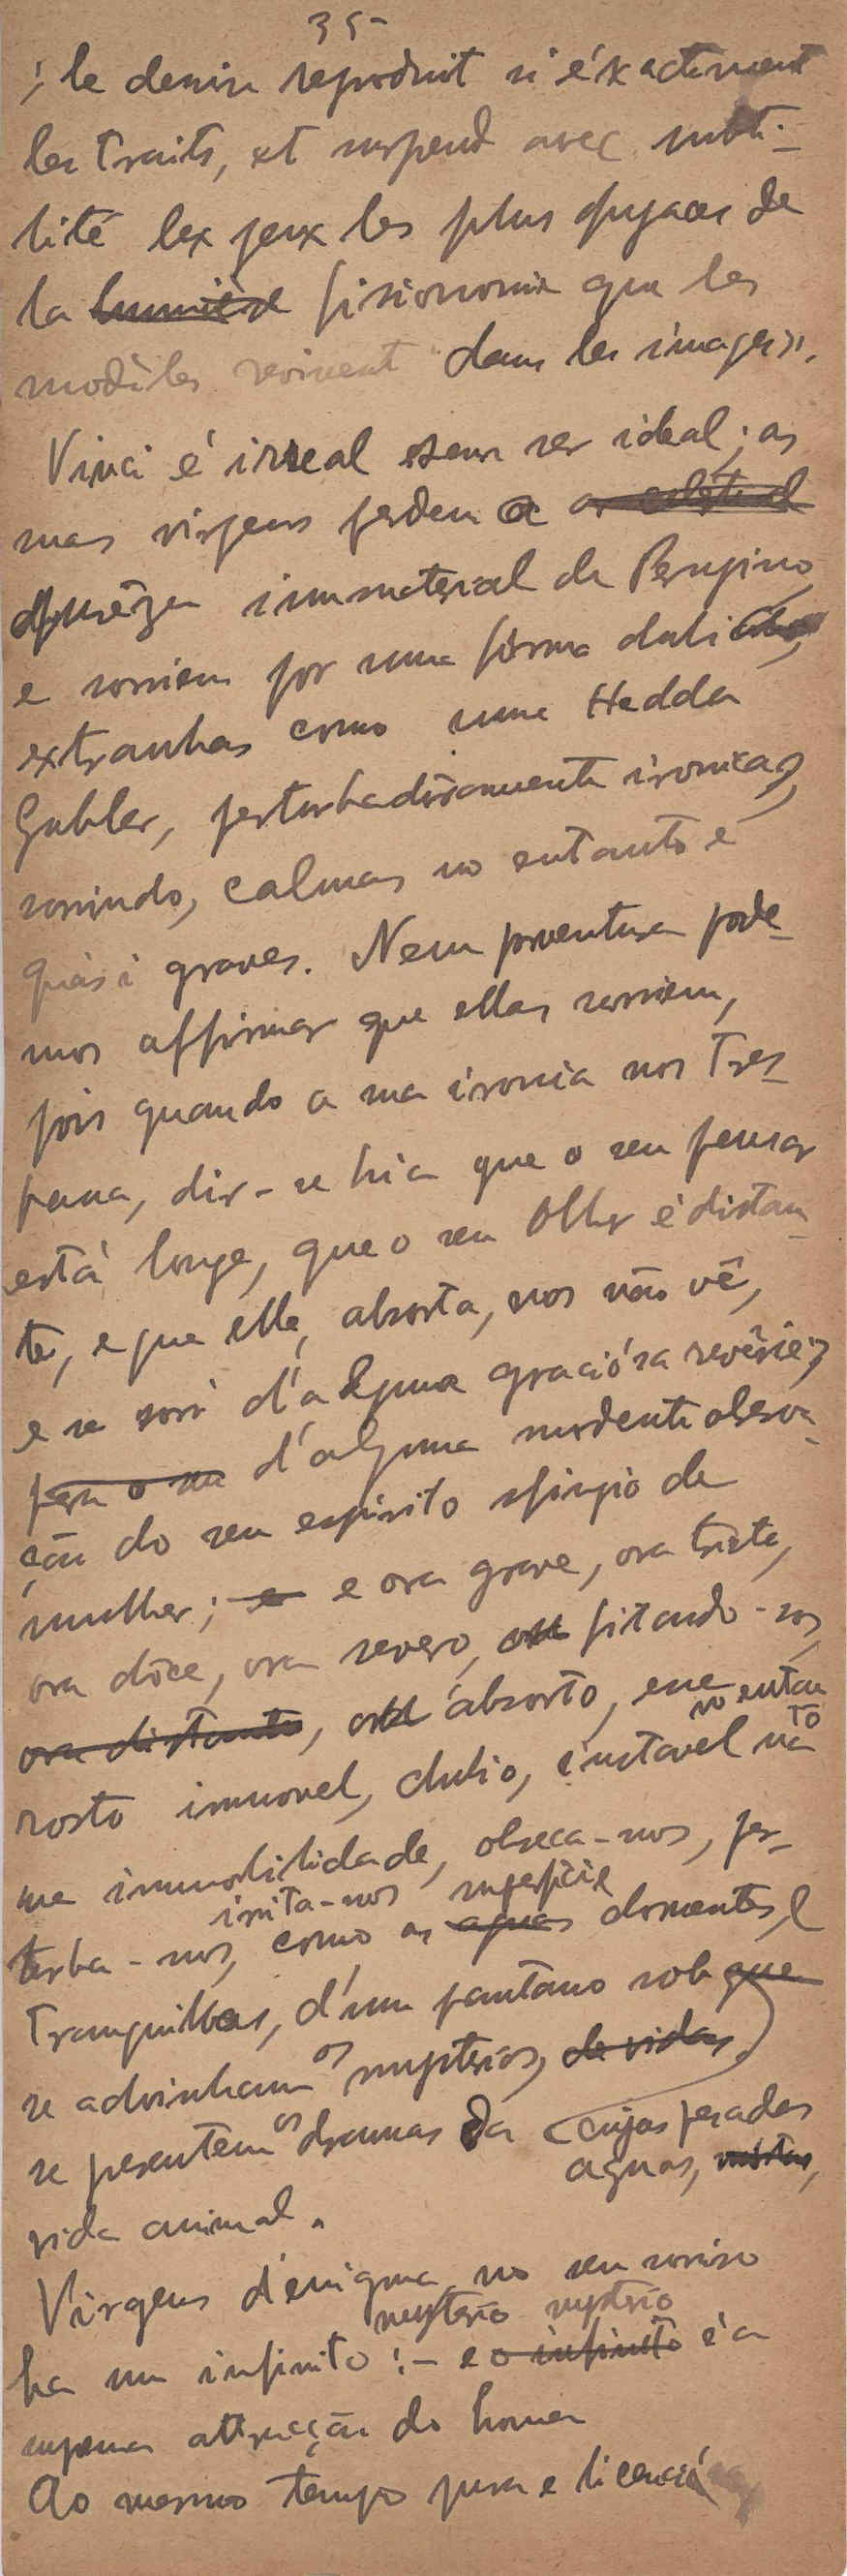 35-
; le dessin reproduit si éxactement
les traits, et suspend avec subti-
lité lex jeux les plus fugaces de
la lumière fisionomie que les
modèles revivent dans les images».
Vinci é irreal sem ser ideal; as
suas virgens perdem a
purêza immaterial de Perugino
e sorriem por uma fórma dubia,
extranhas como uma Hedda
Gabler, perturbadôramente ironicas,
sorrindo, calmas no entanto e
quàsi graves. Nem porventura pode-
mos affirmar que ellas sorriem,
pois quando a sua ironia nos tres-
passa, dir-se hia que o seu pensar
está longe, que o seu olhar é distan-
te, e que ella, absorta, nos não vê,
e se sorri d'alguma gracióza revêrie,
para o seu d'alguma mordente observa-
ção do seu espirito sfingio de
mulher; e e ora grave, ora triste,
ora dôce, ora severo, ora fitando-nos,
ora distante, ora absorto, esse
no entanto
rosto immovel, dubio, instavel na
sua immobilidade, obseca-nos, per-
irrita-nos superficie
turba-nos, como as aguas dormentes, e
tranquillas, d'um pantano sob que
se advinham os mysterios, de vidas
se presentem os dramas da cujas pesadas
aguas,
vida animal.
Virgens d'enigma no seu sorriso
mysterio mysterio
ha um infinito :- e o infinito é a
suprema attracção do homem
Ao mesmo tempo pura e